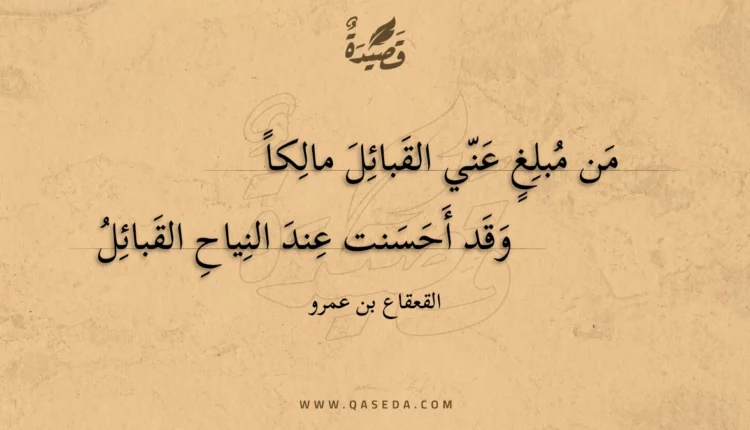 قَصِيدَةٌ
مَن مُبلِغٍ عَنّي القَبائِلَ مالِكاً
وَقَد أَحَسَنت عِندَ النِياحِ القَبائِلُ
القعقاع بن عمرو
WWW.QASEDA.COM